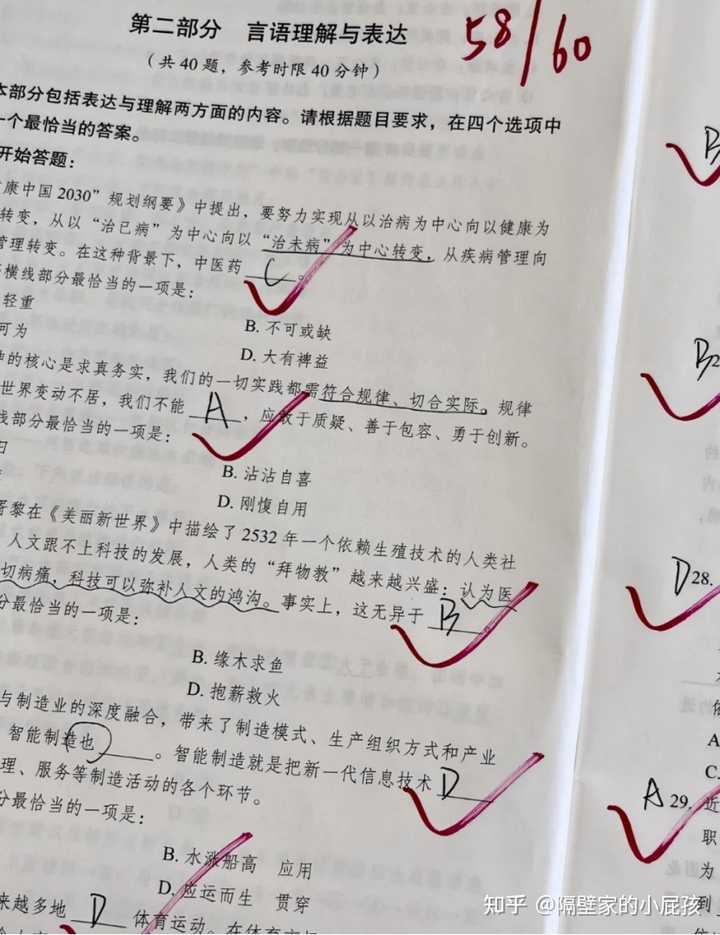 第二部分 言语理解与表达
58/60
(共40题，参考时限40分钟)
本部分包括表达与理解两方面的内容。请根据题目要求，在四个选项中
一个最恰当的答案。
开始答题：
康中国2030”规划纲要》中提出，要努力实现从以治病为中心向以健康为
转变，从以“治已病”为中心向以“治未病”为中心转变，从疾病管理向
管理转变。在这种背景下，中医药 C 。
横线部分最恰当的一项是：
轻重
B. 不可或缺
可为
D. 大有裨益
的核心是求真务实，我们的一切实践都需符合规律、切合实际。规律
世界变动不居，我们不能 A ，应敢于质疑、善于包容、勇于创新。
线部分最恰当的一项是：
B. 沾沾自喜
D. 刚愎自用
胥黎在《美丽新世界》中描绘了2532年一个依赖生殖技术的人类社
，人文跟不上科技的发展，人类的“拜物教”越来越兴盛：认为医
切病痛，科技可以弥补人文的鸿沟。事实上，这无异于 B
分最恰当的一项是：
B. 缘木求鱼
D. 抱薪救火
与制造业的深度融合，带来了制造模式、生产组织方式和产业
智能制造也 。智能制造就是把新一代信息技术 D
理、服务等制造活动的各个环节。
分最恰当的一项是：
B. 水涨船高 应用
D. 应运而生 贯穿
来越多地 D 体育运动。在体育
B
B 2
D 28.
A
C.
A 29. 近
职
为
到
知乎 @隔壁家的小屁孩